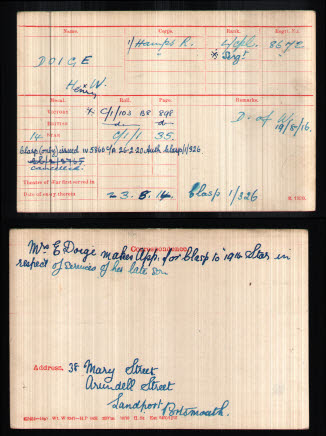 Name. Corps. Rank. Regtl. No.
DOIGE 1/Hamps R. L/Cpl. 8672
x Sergt
Henry W.
Medal. Roll. Page. Remarks.
VICTORY C/1/103 B8 898 D. of W.
BRITISH do. do. 19/8/16.
14 STAR C/1/1 35.
Clasp (only) issued in 5860 26-2-20 Auth Clasp 1/326
cancelled.
Theatre of War first served in
Date of entry therein 23. 8. 14. Clasp 1/326
Correspondence.
Mrs E Doige makes App. for Clasp to 1914 Star in
respect of services of her late son.
Address. 38 Mary Street
Arundell Street
Landport Portsmouth.